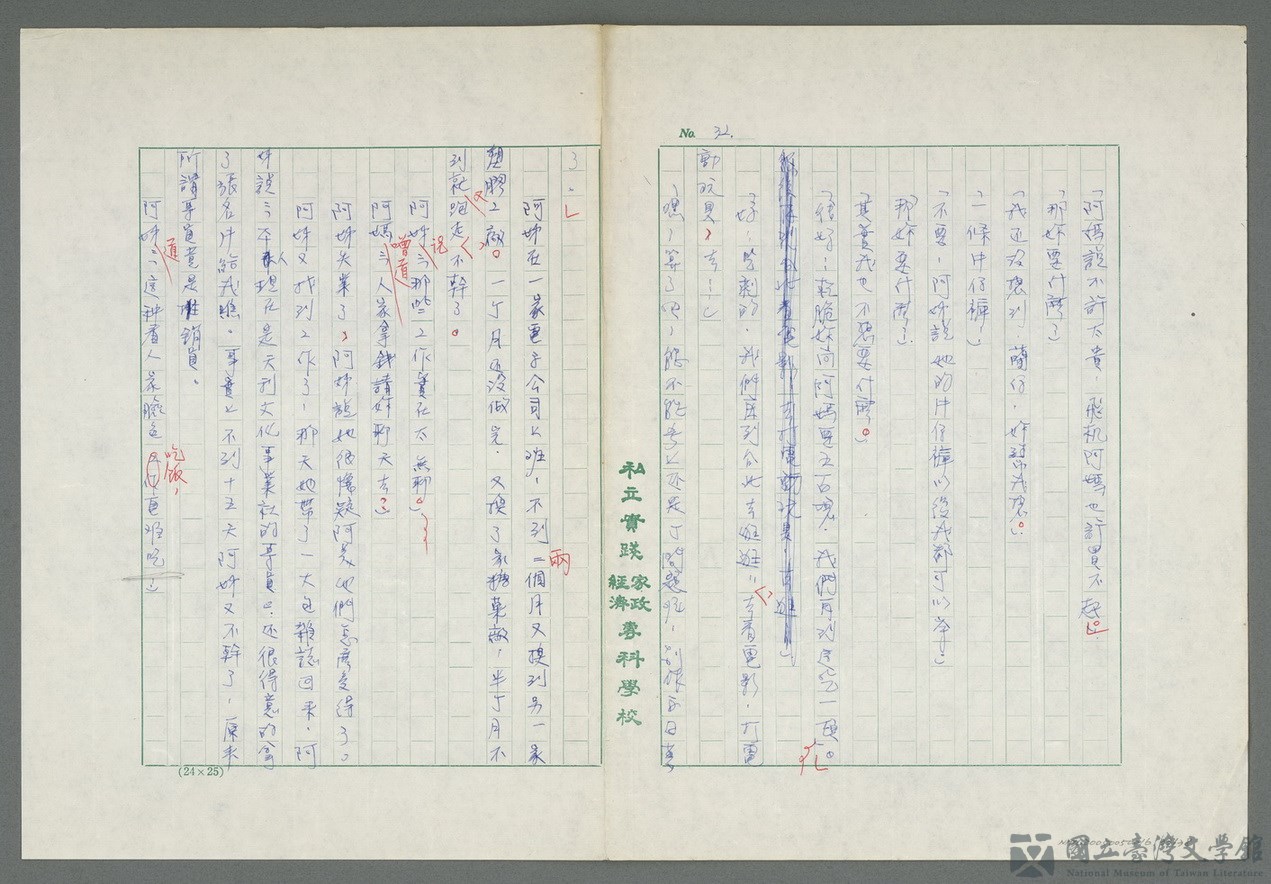 No. 32.
「阿媽說不許太貴，飛机阿媽也許買不起。」
「那妳要什麼」
「我还沒想到，蘭仔，妳幫我想。」
「一條牛仔褲」
「不要，阿姊說她的牛仔褲以後我都可以穿」
「那妳要什麼」
「其實我也不想要什麼。」
「最好，輕脆妳向阿媽要五百塊，我們再到
「好，坐車的，我們坐到台北去逛逛，去看電影，打電
動玩具，去！」
「嘿，算了吧，能不能去还是丁問題呢，別做白日夢
了。」
阿姊在一家電子公司上班，不到兩個月又換到另一家
塑膠工廠。一个月还沒做完，又換了家糖菓廠，半个月不
到就跑走，不幹了。
阿姊說：「那些工作實在太無聊。」
阿媽嚕道：「人家拿錢請妳聊天去？」
阿姊失業了，阿姊說她很懷疑阿美她們怎麼受得了。
阿姊又找到工作了，那天她帶了一大包雜誌回來，阿
姊說：「本人現在是天利文化事業社的專員」，还很得意的拿
了張名片給我瞧。事實上不到十五天阿姊又不幹了，原來
所謂專員竟是推銷員。
阿姊道：「這種看人家臉色吃飯，更难吃」
(24×25)
私立實踐家政經濟專科學校
國立臺灣文學館
National Museum of Taiwan Literature